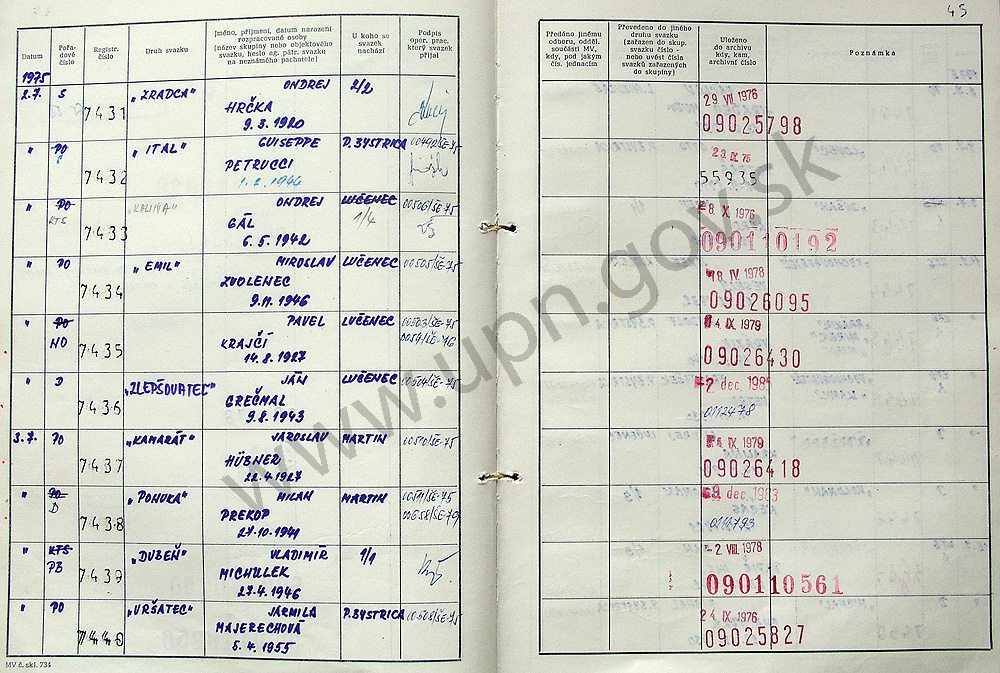 45
Datum
Pořadové číslo
Registr. číslo
Druh svazku
Jméno, příjmení, datum narození
rozpracované osoby
(název skupiny nebo objektového
svazku, heslo ag. pátr. svazku
na neznámého pachatele)
U koho se
svazek
nachází
Podpis
oper. prac.
který svazek
přijal
Předáno jinému
odboru, odděl.
součásti MV,
kdy, pod jakým
čís. jednacím
Převedeno do jiného
druhu svazku
(zařazen do skup.
svazku číslo -
nebo uvést čísla
svazků zařazených
do skupiny)
Uloženo
do archivu
kdy, kam,
archivní číslo
Poznámka
1975
2.7. S 7431 "ZRADCA" ONDREJ 2/2
HRČKA
9.3.1920
29 VII 1976
09025798
" PO 7432 "ITAL" GUISEPPE P. BYSTRICA 00492/ŠE-75
PETRUCCI
1.2.1946
23 IX. 75
55935
" PO KTS 7433 "KALINA" ONDREJ LUČENEC 1/4 00506/ŠE-75
GÁL
6.5.1942
8. X. 1976
090110192
" PO 7434 "EMIL" MIROSLAV LUČENEC 00505/ŠE-75
ZVOLENEC
9.11.1946
18. IV. 1978
09026095
" PO NO 7435 PAVEL LUČENEC 00503/ŠE-75
KRAJČÍ
14.8.1927
4. IX. 1979
09026430
" D 7436 "ZLEPŠOVATEĽ" JÁN LUČENEC 00504/ŠE-75
GREČMAL
9.8.1943
0112478
3.7. PO 7437 "KAMARÁT" JAROSLAV MARTIN 00510/ŠE-75
HÜBNER
22.4.1927
4. IX. 1979
09026418
" PO D 7438 "PONUKA" MILAN MARTIN 00511/ŠE-75
00658/ŠE-79
PREKOP
27.10.1941
-9. dec. 1983
" KTS PB 7439 "DUBEŇ" VLADIMÍR 1/1
MICHULEK
27.4.1946
-2. VIII. 1978
090110561
" PO 7440 "VRŠATEC" JARMILA P. BYSTRICA 00508/ŠE-75
MAJERECHOVÁ
5.4.1955
24 IX. 1976
09025827
MV č. skl. 734
www.upn.gov.sk